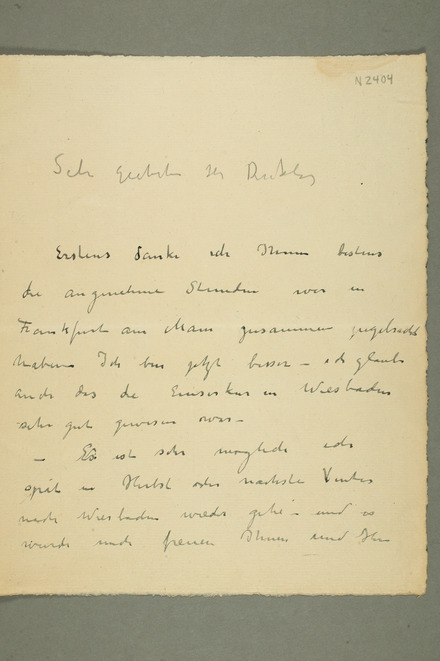 N 2404
Sehr geehrter Herr
Erstens danke ich Ihnen bestens
die angenehme Stunden was in
Frankfurt am Main zusammen zugebracht
haben Ich bin jetzt besser – ich glaube
auch das die Emserkur in Wiesbaden
sehr gut gewesen war –
– Es ist sehr moglich ich
spät in Herbst oder nachste
nach Wiesbaden wieder gehe – und es
wurde mich freuen Ihnen und Ihr